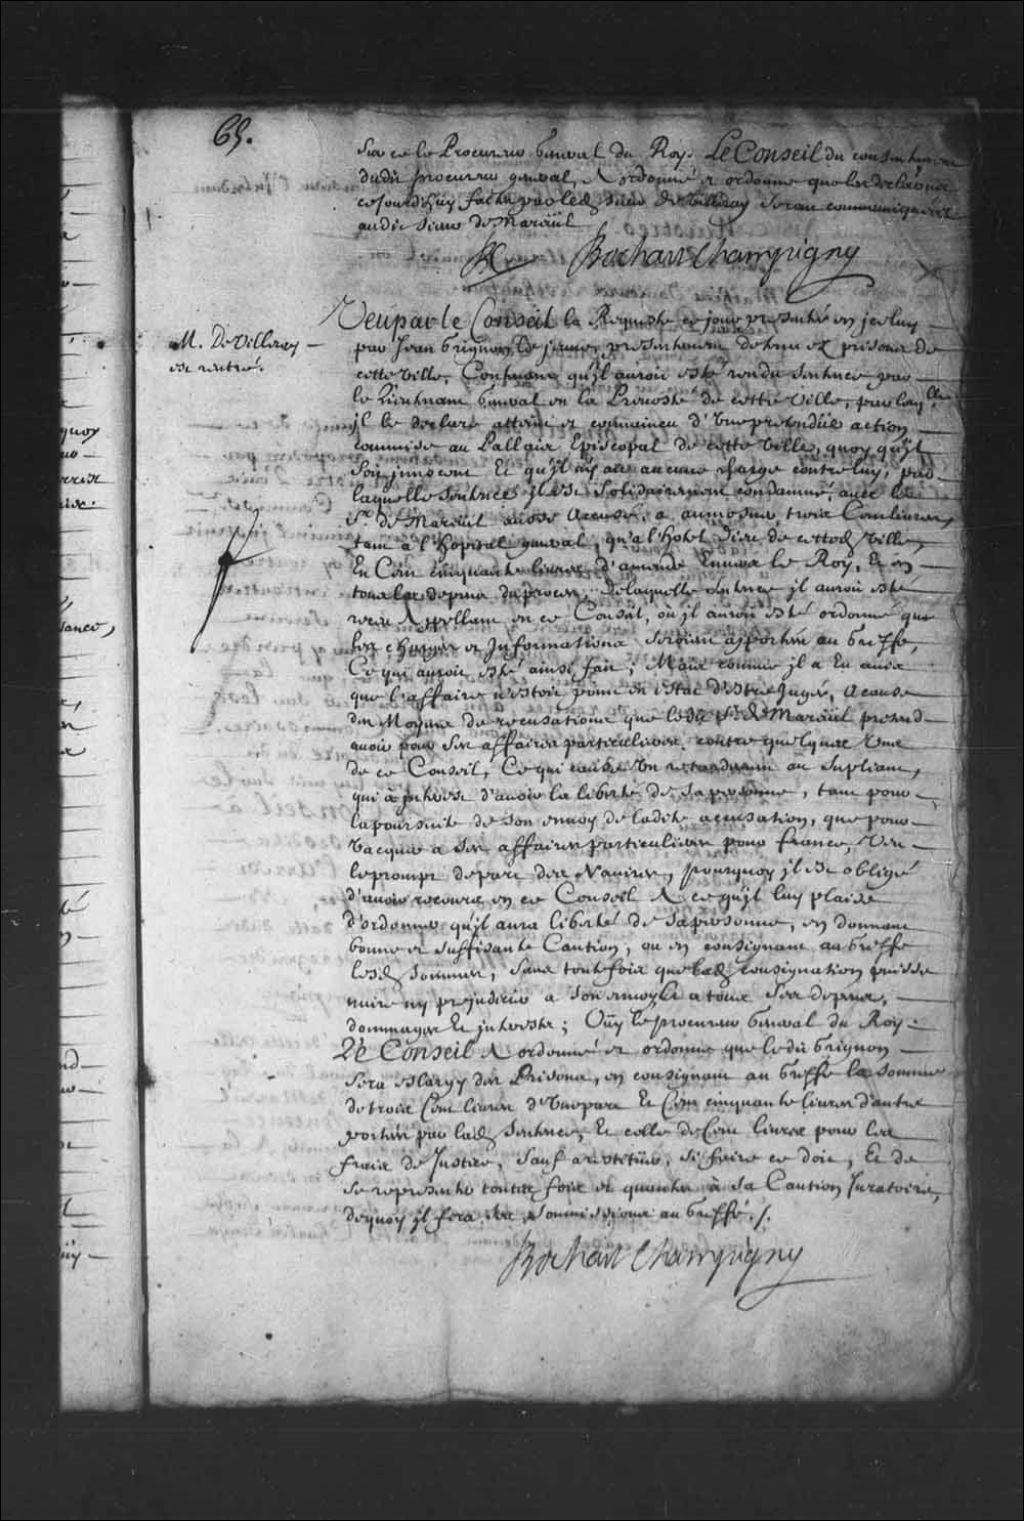 65.
Sur ce le Procureur General du Roy. Le Conseil du consentement
dudit procureur general, A ordonné et ordonne que les declaõns
cejourd'huy faites par led. sieur de Villeray seront communiquées
audit sieur de Mareüil
Bochart Champigny
M. De Villeray
est rentré.
Veu par le Conseil la Requeste ce jour presentée en jceluy
par Jean Grignon le jeune, presentement detenu ez prisons de
cette ville, Contenant qu'jl auroit esté rendu sentence par
le Lieutenant General en la Prevosté de cette ville, par laqlle
jl le declare atteint et convaincu d'une pretendüe action
commise au Pallais Episcopal de cette ville, quoy qu'jl
soit jnnocent Et qu'jl n'y ait aucune charge contre luy, par
laquelle sentence jl est solidairement condamné, avec le
Sr. de Mareüil aussy accusé, a aumosner trois Cent livres
tant a l'hopital general, qu'a l'hotel Dieu de cette d. ville,
En Cent cinquante livres d'amende Envers le Roy, Et en
tous les depens du proces, de laquelle sentence jl auroit esté
receu Appellant en ce Conseil, où jl auroit esté ordonné que
les charges et Informations seroient apportées au Greffe,
Ce qui auroit esté ainsi fait; Mais comme jl a Eu avis
que l'affaire n'estoit point en estat d'estre Jugée, A cause
des Moyens de recusations que ledit Sr. de Mareüil pretend
avoir pour ses affaires particulieres, contre quelques Uns
de ce Conseil, Ce qui cause Un retardement au supliant,
qui a jnterest d'avoir la liberté de sa personne, tant pour
la poursuite de son envoy de ladite accusation, que pour
vacquer a ses affaires particulieres pour france, Veu
le prompt depart des Navires, pourquoy jl est obligé
d'avoir recours en ce Conseil A ce qu'jl luy plaise
d'ordonner qu'jl aura liberté de sa personne, en donnant
bonne et suffisante Caution, ou en consignant au Greffe
lesd. sommes, sans toutefois que lad. consignation puisse
nuire ny prejudicier a son envoy Et a tous ses depens,
dommages Et jnterests; Oüy le procureur General du Roy.
Le Conseil A ordonné et ordonne que ledit Grignon
sera eslargy des Prisons, en consignant au Greffe la somme
de trois Cent livres d'Une part Et Cent cinquante livres d'autre
portées par lad. sentence, Et celle de Cent livres pour les
frais de Justice, sauf a restitüer, si faire ce doit, Et de
se representer toutes fois et quantes à sa Caution Juratoire,
de quoy jl fera ses soumissions au Greffe ./.
Bochart Champigny